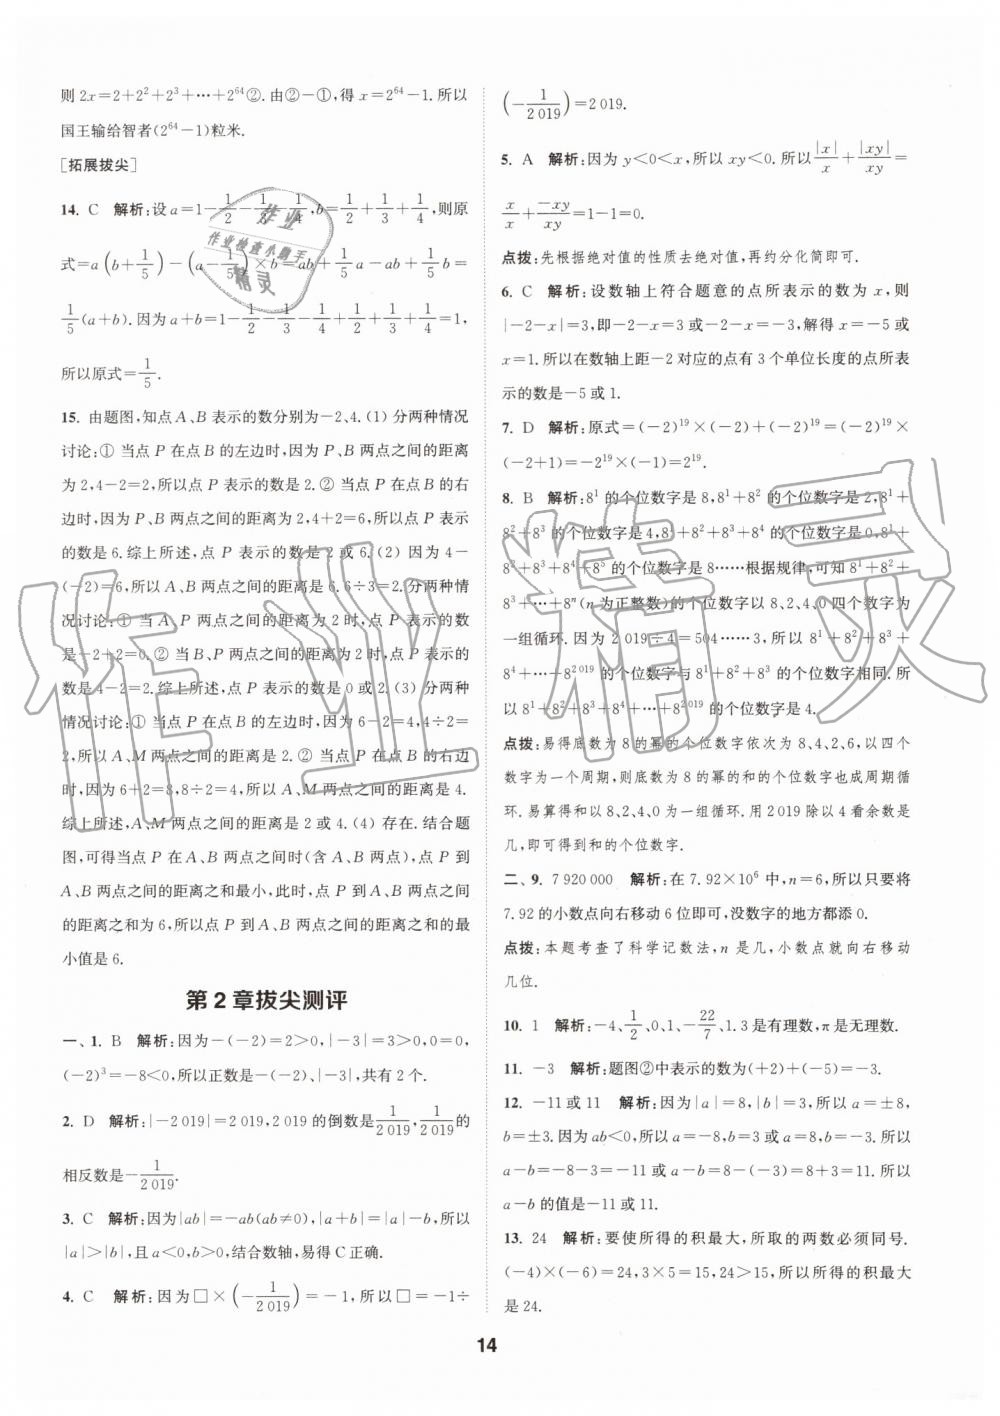 则 2x=2+2²+2³+…+2⁶⁴②.由②-①,得 x=2⁶⁴-1.所以
国王输给智者(2⁶⁴-1)粒米.
[拓展拔尖]
14. C 解析:设 a=1-1/2-1/3-1/4,b=1/2+1/3+1/4,则原
式=a(b+1/5)-(a-1/5)×b=ab+1/5a-ab+1/5b=
1/5(a+b).因为 a+b=1-1/2-1/3-1/4+1/2+1/3+1/4=1,
所以原式=1/5.
15. 由题图,知点 A、B 表示的数分别为-2、4.(1) 分两种情况
讨论:① 当点 P 在点 B 的左边时,因为 P、B 两点之间的距离
为 2,4-2=2,所以点 P 表示的数是 2.② 当点 P 在点 B 的右
边时,因为 P、B 两点之间的距离为 2,4+2=6,所以点 P 表示
的数是 6.综上所述,点 P 表示的数是 2 或 6.(2) 因为 4-
(-2)=6,所以 A、B 两点之间的距离是 6.6÷3=2.分两种情
况讨论:① 当 A、P 两点之间的距离为 2 时,点 P 表示的数
是-2+2=0.② 当 B、P 两点之间的距离为 2 时,点 P 表示的
数是 4-2=2.综上所述,点 P 表示的数是 0 或 2.(3) 分两种
情况讨论:① 当点 P 在点 B 的左边时,因为 6-2=4,4÷2=
2,所以 A、M 两点之间的距离是 2.② 当点 P 在点 B 的右边
时,因为 6+2=8,8÷2=4,所以 A、M 两点之间的距离是 4.
综上所述,A、M 两点之间的距离是 2 或 4.(4) 存在.结合题
图,可得当点 P 在 A、B 两点之间时(含 A、B 两点),点 P 到
A、B 两点之间的距离之和最小,此时,点 P 到 A、B 两点之间
的距离之和为 6,所以点 P 到 A、B 两点之间的距离之和的最
小值是 6.
第 2 章拔尖测评
一、1. B 解析:因为-(-2)=2>0,|-3|=3>0,0=0,
(-2)³=-8<0,所以正数是-(-2)、|-3|,共有 2 个.
2. D 解析:|-2 019|=2 019,2 019 的倒数是1/2 019,1/2 019的
相反数是-1/2 019.
3. C 解析:因为|ab|=-ab(ab≠0),|a+b|=|a|-b,所以
|a|>|b|,且 a<0,b>0,结合数轴,易得 C 正确.
4. C 解析:因为 □×(-1/2 019)=-1,所以 □=-1÷
(-1/2 019)=2 019.
5. A 解析:因为 y<0<x,所以 xy<0.所以|x|/x+|xy|/xy=
x/x+-xy/xy=1-1=0.
点拨:先根据绝对值的性质去绝对值,再约分化简即可.
6. C 解析:设数轴上符合题意的点所表示的数为 x,则
|-2-x|=3,即-2-x=3 或-2-x=-3,解得 x=-5 或
x=1.所以在数轴上距-2 对应的点有 3 个单位长度的点所表
示的数是-5 或 1.
7. D 解析:原式=(-2)¹⁹×(-2)+(-2)¹⁹=(-2)¹⁹×
(-2+1)=-2¹⁹×(-1)=2¹⁹.
8. B 解析:8¹ 的个位数字是 8,8¹+8² 的个位数字是 2,8¹+
8²+8³ 的个位数字是 4,8¹+8²+8³+8⁴ 的个位数字是 0,8¹+
8²+8³+8⁴+8⁵ 的个位数字是 8……根据规律,可知 8¹+8²+
8³+…+8ⁿ(n 为正整数)的个位数字以 8、2、4、0 四个数字为
一组循环.因为 2 019÷4=504……3,所以 8¹+8²+8³+
8⁴+…+8²⁰¹⁹ 的个位数字与 8¹+8²+8³ 的个位数字相同.所
以 8¹+8²+8³+8⁴+…+8²⁰¹⁹ 的个位数字是 4.
点拨:易得底数为 8 的幂的个位数字依次为 8、4、2、6,以四个
数字为一个周期,则底数为 8 的幂的和的个位数字也成周期循
环.易算得和以 8、2、4、0 为一组循环.用 2 019 除以 4 看余数是
几,即可得到和的个位数字.
二、9. 7 920 000 解析:在 7.92×10⁶ 中,n=6,所以只要将
7.92 的小数点向右移动 6 位即可,没数字的地方都添 0.
点拨:本题考查了科学记数法,n 是几,小数点就向右移动
几位.
10. 1 解析:-4、1/2、0、1、-22/7、1.3 是有理数,π 是无理数.
11. -3 解析:题图②中表示的数为(+2)+(-5)=-3.
12. -11 或 11 解析:因为|a|=8,|b|=3,所以 a=±8,
b=±3.因为 ab<0,所以 a=-8,b=3 或 a=8,b=-3.所以
a-b=-8-3=-11 或 a-b=8-(-3)=8+3=11.所以
a-b 的值是-11 或 11.
13. 24 解析:要使所得的积最大,所取的两数必须同号.
(-4)×(-6)=24,3×5=15,24>15,所以所得的积最大
是 24.
14
作业
作业检查小助手
精灵
作业精灵